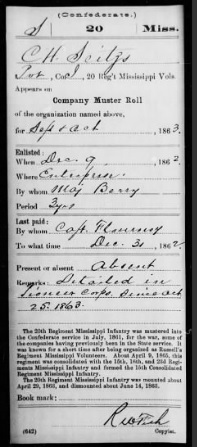 (Confederate.)
S 20 Miss.
C H Seitzs
Pvt, Co. I, 20 Reg't Mississippi Vols.
Appears on
Company Muster Roll
of the organization named above,
for Sept & Oct, 1863.
Enlisted:
When Dec. 9, 1862
Where
By whom Maj Berry
Period 3 yrs
Last paid:
By whom Capt. Flournoy
To what time Dec. 31, 1862
Present or absent Absent
Remarks: Detailed in
Pioneer Corps. since Oct
25. 1863.
The 20th Regiment Mississippi Infantry was mustered into
the Confederate service in July, 1861, for the war, some
of the companies having previously been in the State service. It
was known for a short time after being organized as Russell's
Regiment Mississippi Volunteers. About April 9, 1865, this
regiment was consolidated with the
Regiment Mississippi Infantry and formed the 15th Consolidated
Regiment Mississippi Infantry.
The 20th Regiment Mississippi Infantry was mounted about
April 29, 1863, and dismounted about June 14, 1863.
Book mark:
(642) Copyist.